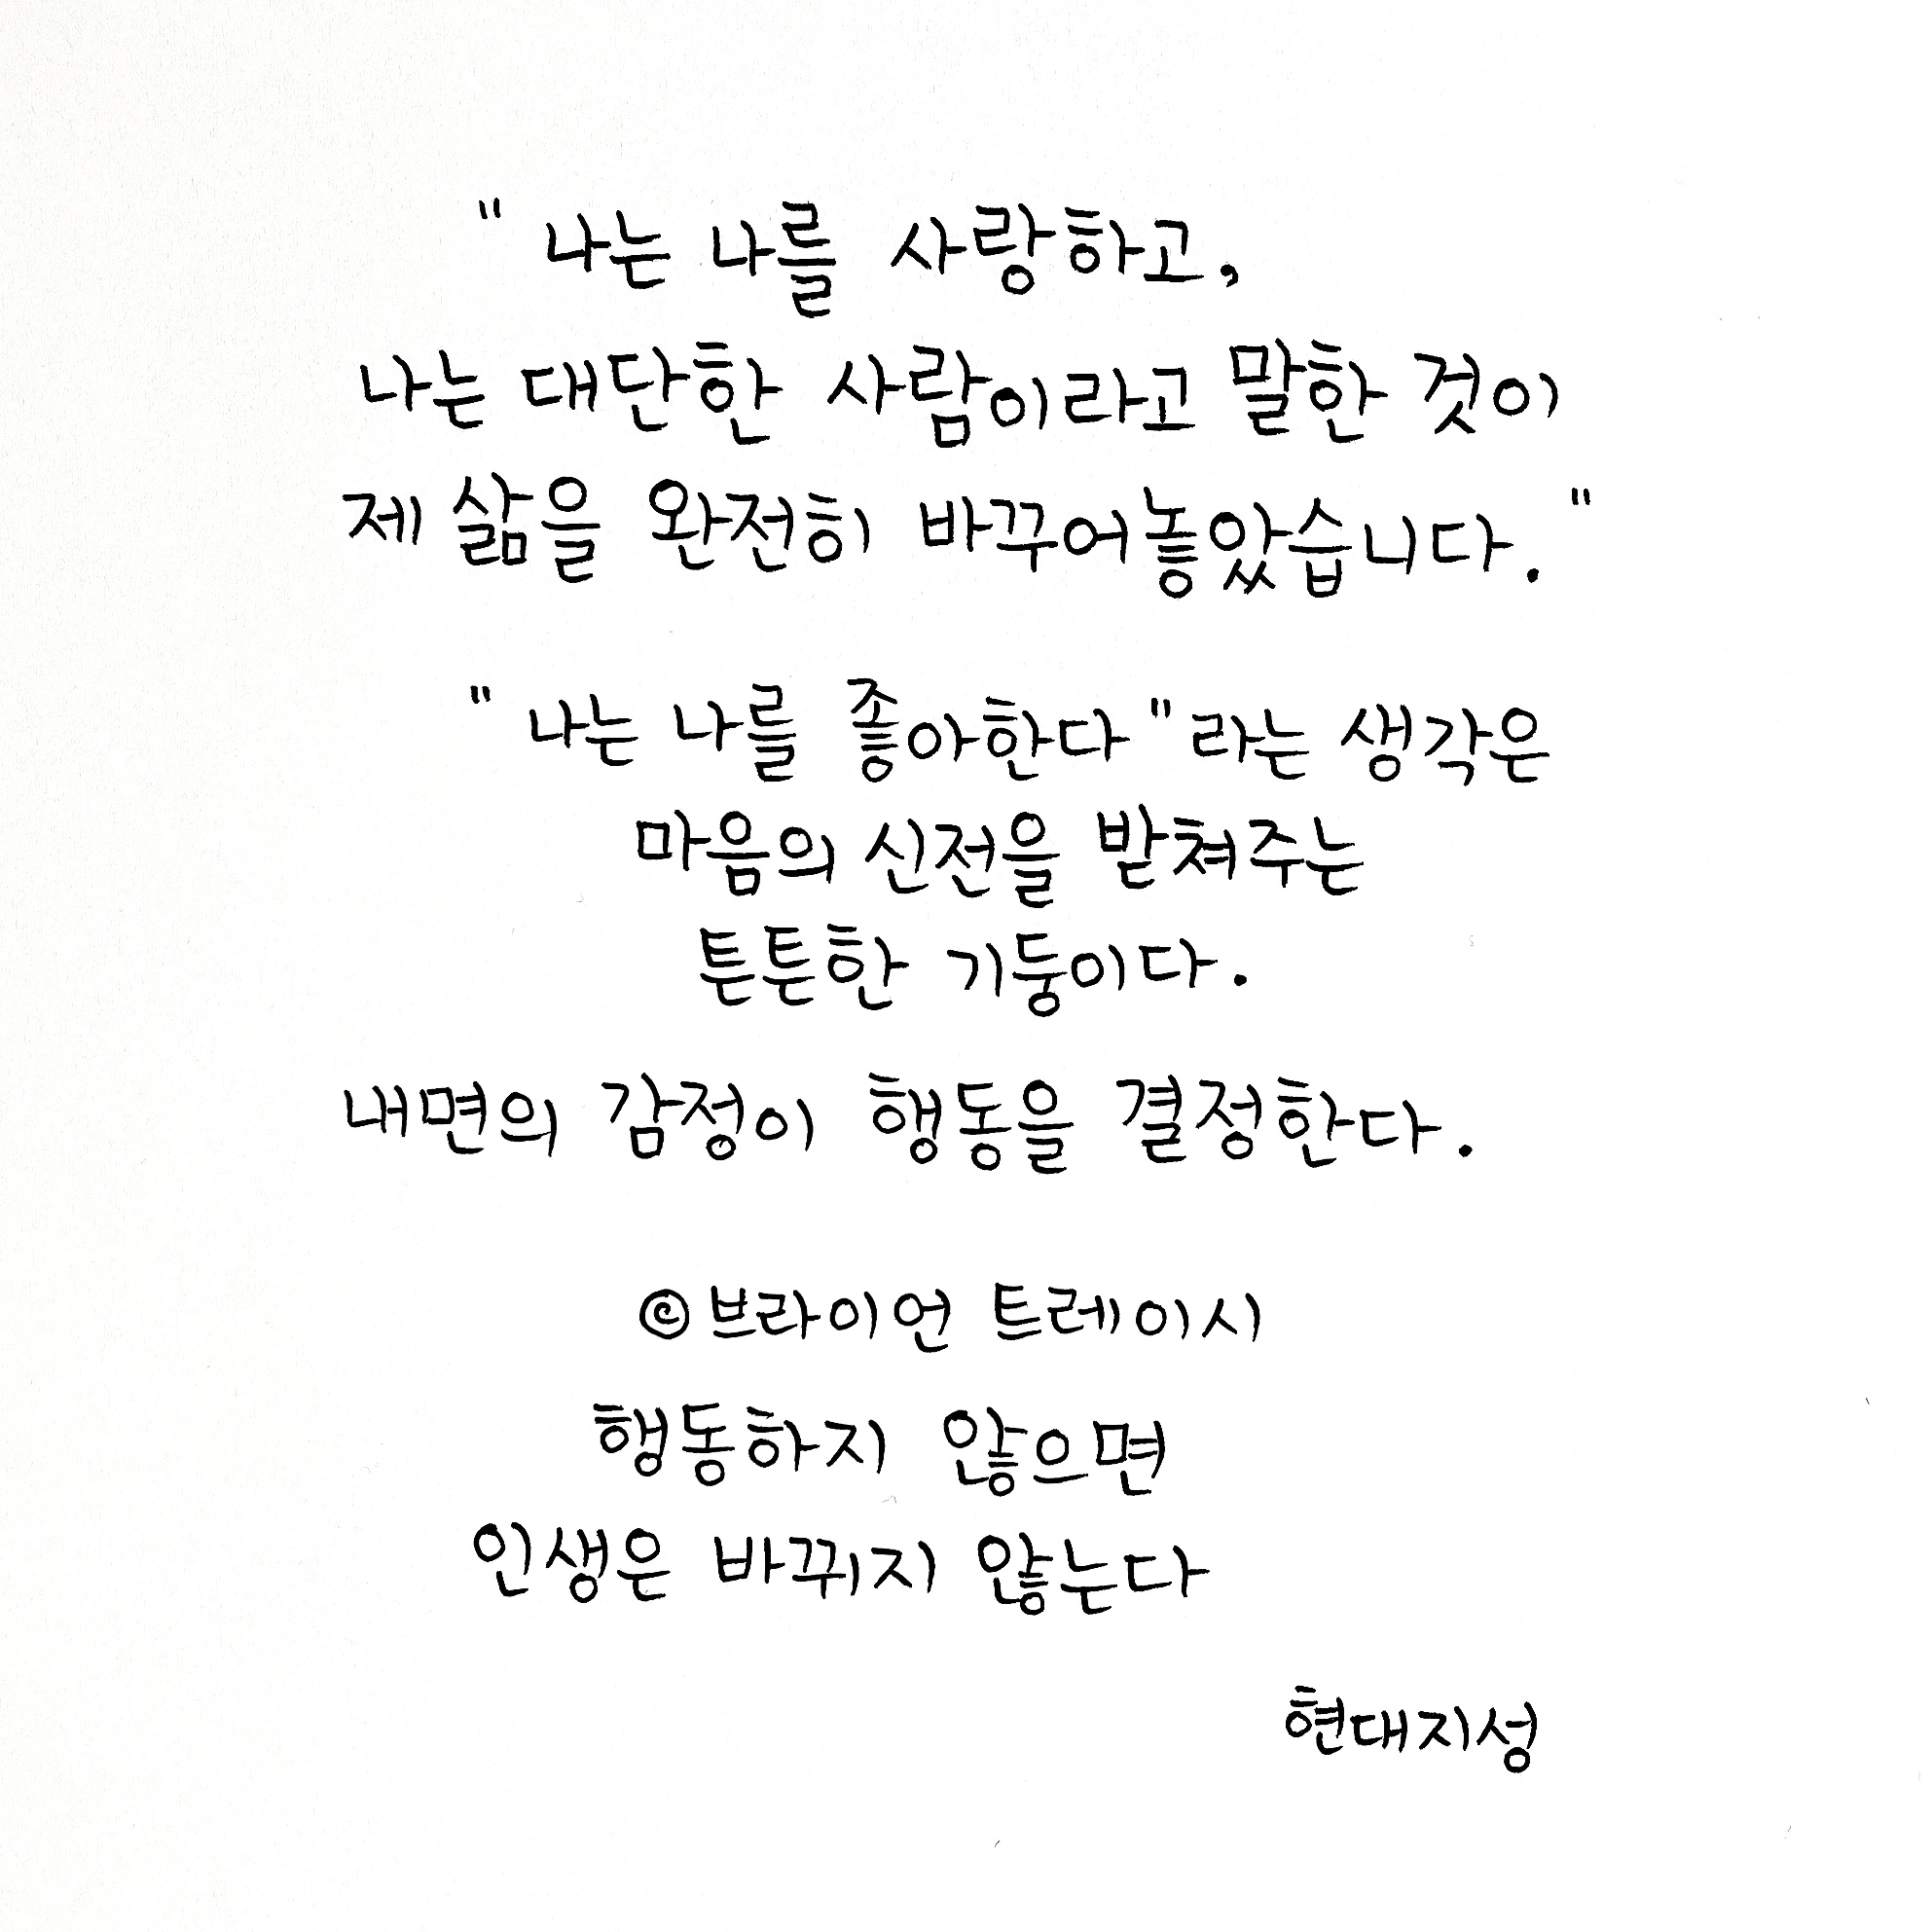 "나는 나를 사랑하고,
나는 대단한 사람이라고 말한 것이
제 삶을 완전히 바꾸어놓았습니다."
"나는 나를 좋아한다"라는 생각은
마음의 신전을 받쳐주는
튼튼한 기둥이다.
내면의 감정이 행동을 결정한다.
©브라이언 트레이시
행동하지 않으면
인생은 바뀌지 않는다
현대지성